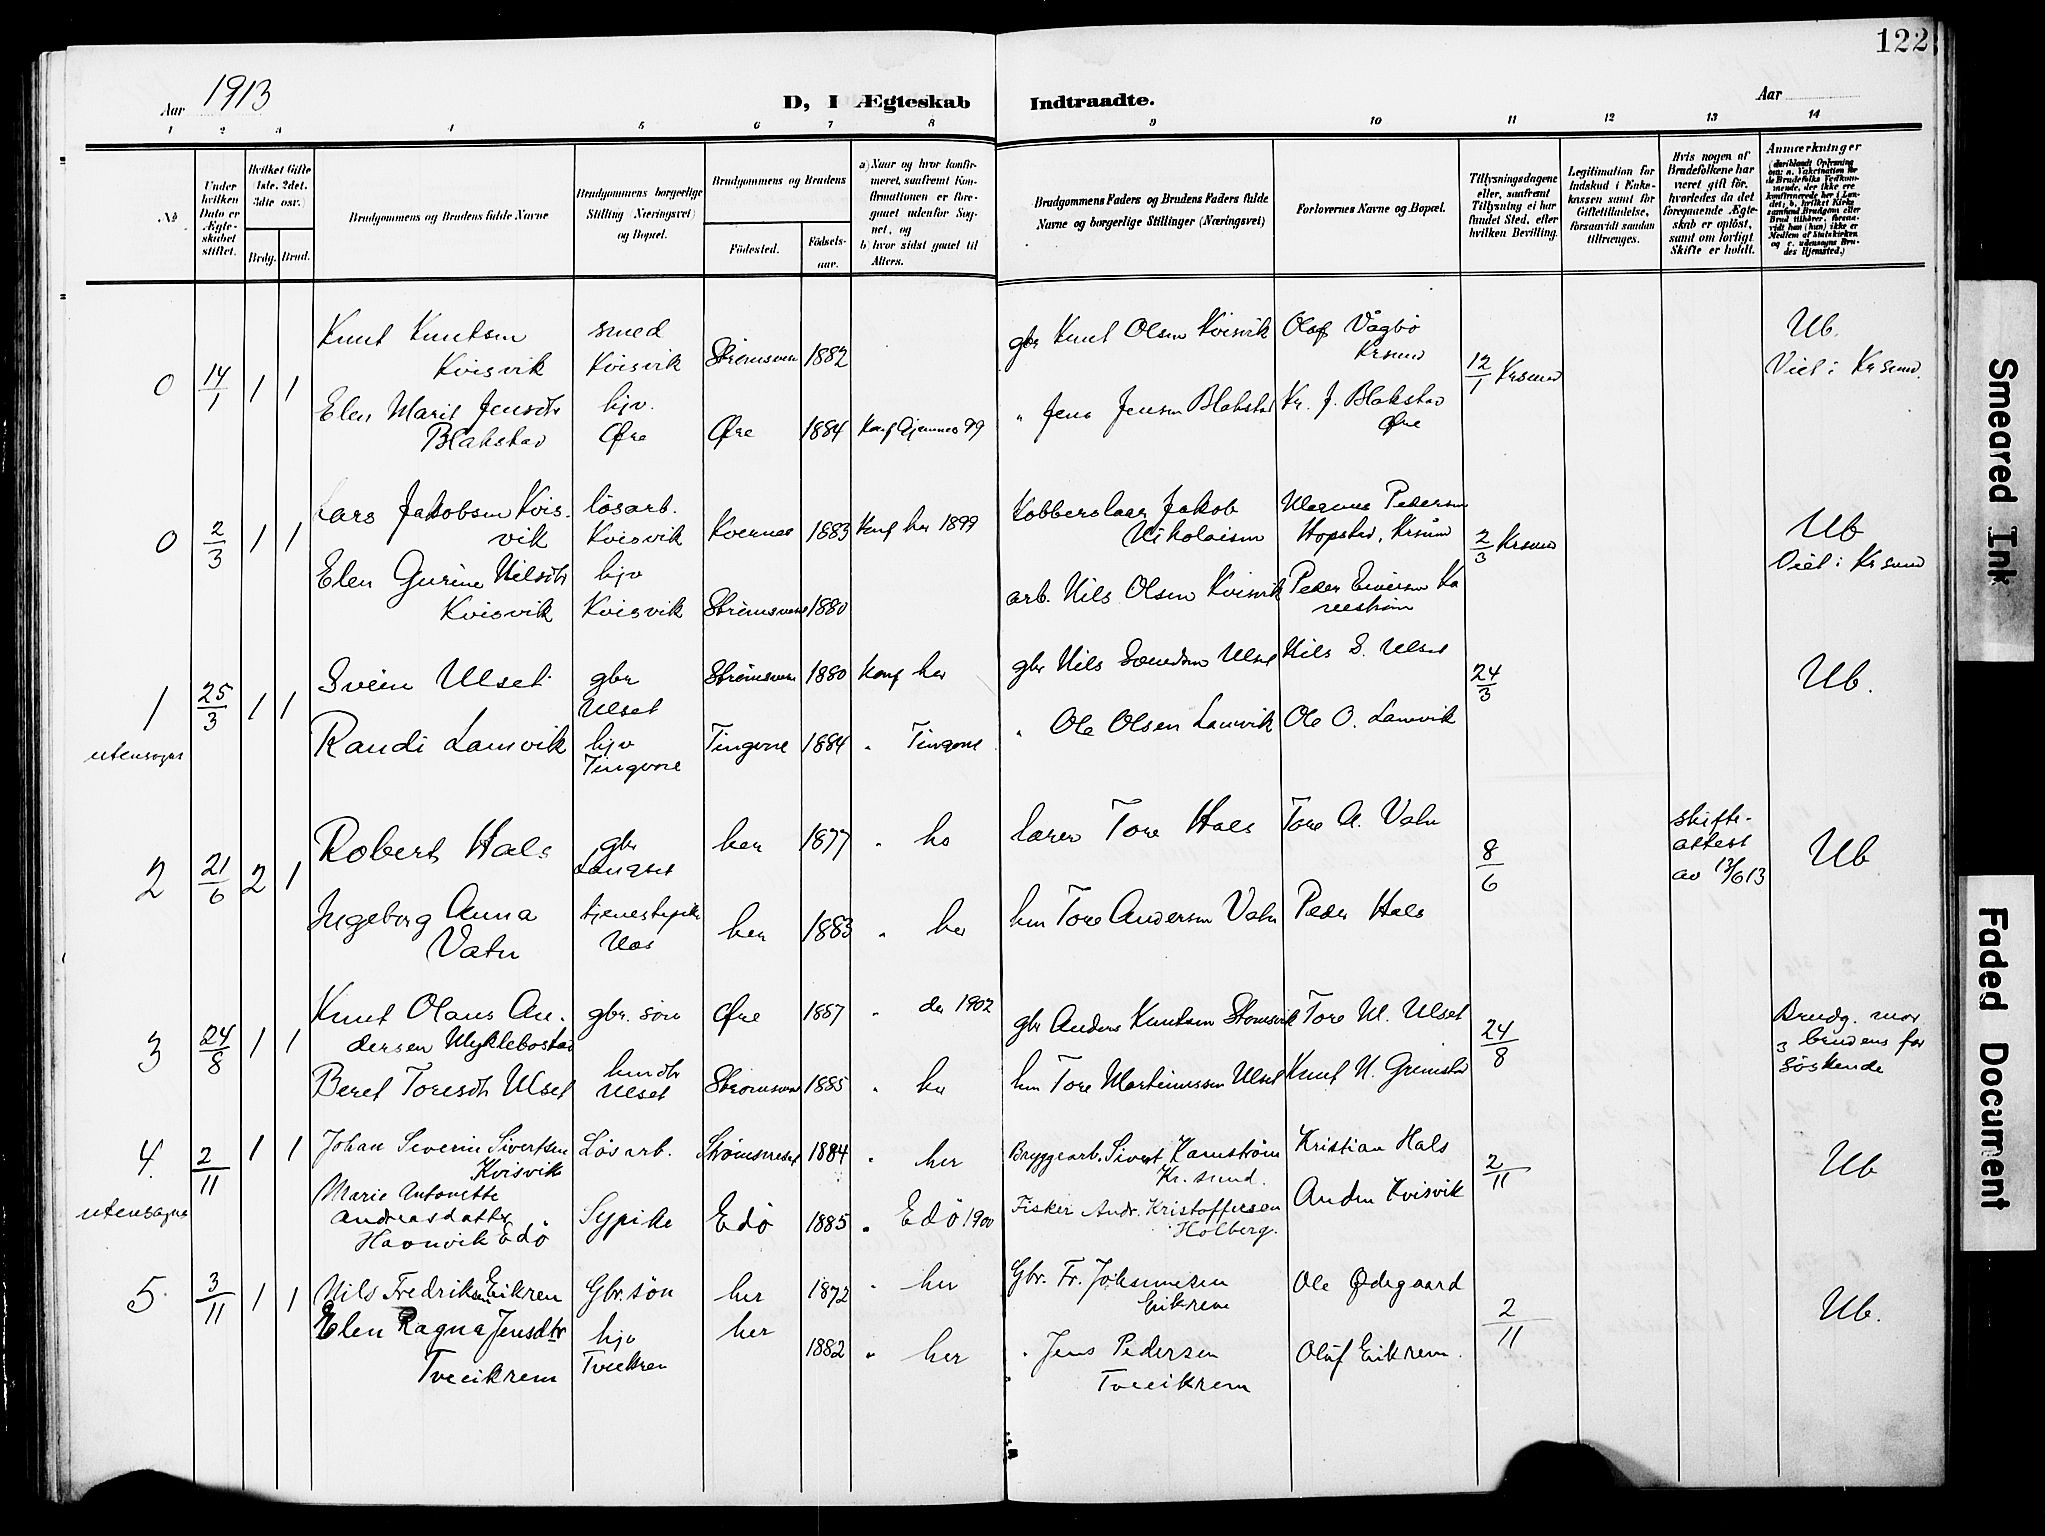 122
Aar 1913
D, I Ægteskab Indtraadte.
Aar
1 2 3 4 5 6 7 8 9 10 11 12 13 14
No
Under hvilken Dato er Ægteskabet stiftet.
Hvilket Gifte 1ste. 2det. 3dte osv.)
Brdg. Brud.
Brudgommens og Brudens fulde Navne
Brudgommens borgerlige Stilling (Næringsvei) og Bopæl.
Brudgommens og Brudens
Fødested.
Fødselsaar.
a) Naar og hvor konfirmeret, saafremt Konfirmationen er foregaaet udenfor Sognet, og
b) hvor sidst gaaet til Alters.
Brudgommens Faders og Brudens Faders fulde Navne og borgerlige Stillinger (Næringsvei)
Forlovernes Navne og Bopæl.
Tillysningsdagene eller, saafremt Tillysning ei har fundet Sted, efter hvilken Bevilling.
Legitimation for Indskud i Enkekassen samt for Giftetilladelse, forsaavidt saadan tiltrænges.
Hvis nogen af Brudefolkene har været gift før, hvorledes da det foregaaende Ægteskab er opløst, samt om lovligt Skifte er holdt.
Anmærkninger
0 14/1 1 1
Knut Knutsen Kvisvik
smed Kvisvik
Strømsnes 1882
gbr Knut Olsen Kvisvik
Olaf Vågbø Krsund
12/1 Krsund
Ub.
Viet i Krsund.
Elen Marit Jensdtr Blakstad
hjv. Øre
Øre 1884 Konf Gjemnes 99
" Jens Jensen Blakstad
Kr. J. Blakstad Øre
0 2/3 1 1
Lars Jakobsen Kvisvik
løsarb. Kvisvik
Kvernes 1883 Konf her 1899
Kobberslager Jakob Nikolaisen
Magnus Pedersen Hopstad, Krsund
2/3 Krsund
Ub
Viet i Krsund
Elen Gurine Nilsdtr Kvisvik
hjv Kvisvik
Strømsnes 1880
arb. Nils Olsen Kvisvik
Peder
1 25/3 1 1
utensogns
Svein Ulset
gbr Ulset
Strømsnes 1880 Konf her
gbr Nils Svendsen Ulset
Nils S. Ulset
24/3
Ub.
Randi Lamvik
hjv Tingvoll
Tingvoll 1884 " Tingvoll
" Ole Olsen Lamvik
Ole O. Lamvik
2 21/6 2 1
Robert Hals
gbr Langset
her 1877 " her
lærer Tore Hals
Tore A. Vatn
8/6
skifteattest av 13/6 13
Ub
Ingeborg Anna Vatn
her 1883 " her
hm Tore Andersen Vatn
Peder Hals
3 24/8 1 1
Knut Olaus Andersen Myklebostad
gbr. søn
Øre 1887 " der 1902
gbr Anders Knutsen Stomsvik
Tore M. Ulset
24/8
Brudg. mor
& brudens far
søskende
Beret Toresdtr Ulset
hmdtr Ulset
Strømsnes 1885 " her
hm Tore Martinussen Ulset
Knut N. Grimstad
4. 2/11 1 1
utensogns
Johan Severin Sivertsen Kvisvik
Løsarb.
Strømsneset 1884 " her
Bryggearb. Sivert Kamstrøm Kr.sund.
Kristian Hals
2/11
Ub
Marie Antonette Andreasdatter Havnvik Edø
Sypike
Edø 1885 " Edø 1900
Fisker Andr. Kristoffersen Holberg.
Anders Kvisvik
5. 3/11 1 1
Nils Fredriksen Eikrem
Gbr.søn
her 1872 " her
Gbr. Fr. Johannesen Eikrem
Ole Ødegaard
2/11
Ub.
Elen Ragna Jensdtr Tveeikrem
hjv Tveeikrem
her 1882 " her
" Jens Pedersen Tveeikrem
Oluf Eikrem.
Smeared Ink
Faded Document